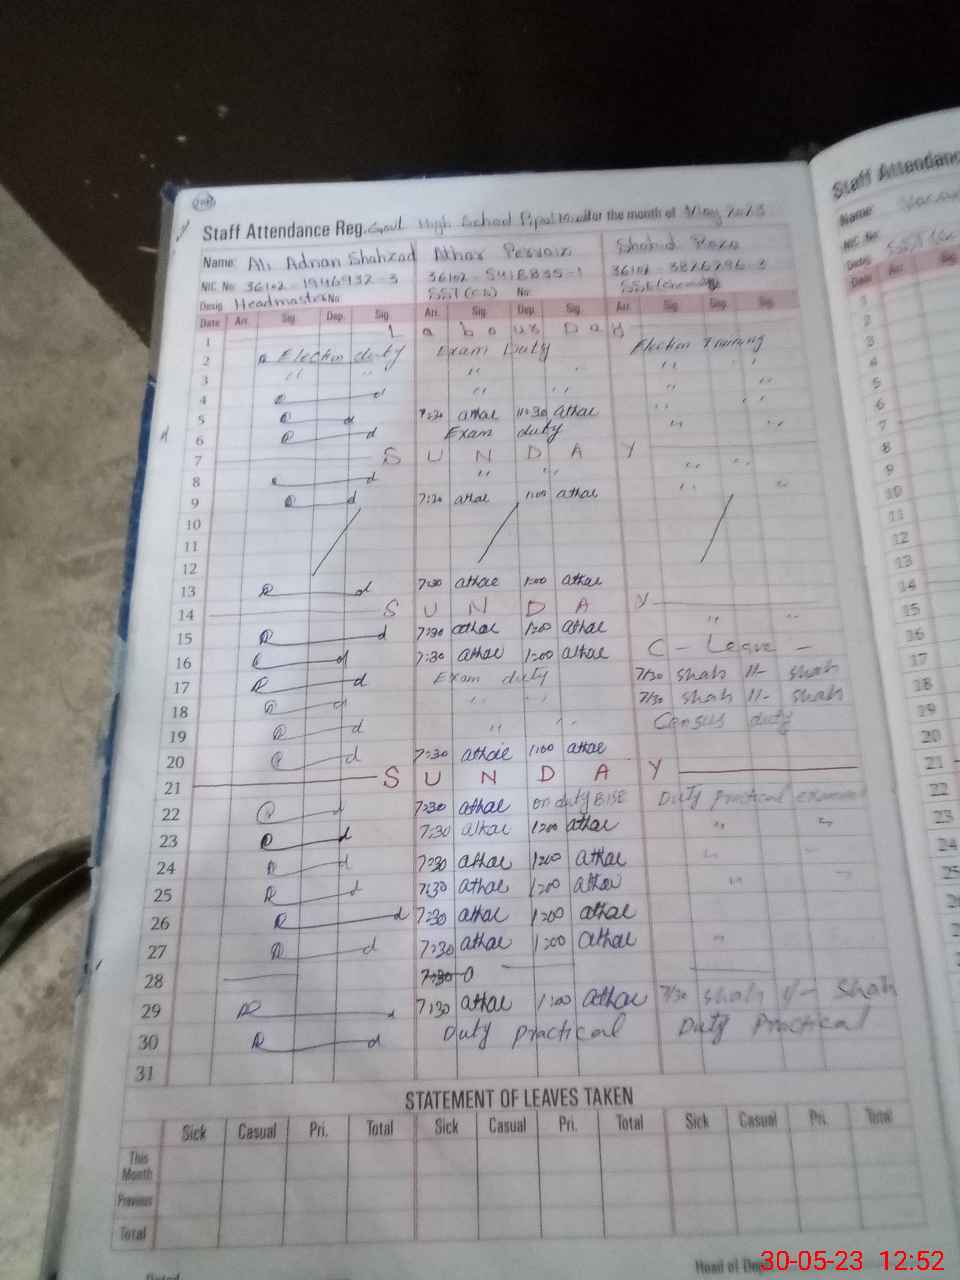 Staff Attendance Reg. Govt High School for the month of May 2023
Name: Ali Adnan Shahzad Athar Pervaiz Shahid Raza
NIC No 36102-1946932-3 36102- -1 36102-3826296-3
Desig Headmaster No SST No
Date Arr. Sig. Dep. Sig. Arr. Sig. Dep. Sig. Arr. Sig. Dep. Sig.
1 Labour Day
2 Election duty Exam Duty Election Training
3 " " " " " "
4 " " " "
5 7:30 athar 11:30 athar " "
6 Exam duty " "
7 SUNDAY
8 " " " "
9 7:30 athar 1:00 athar " "
10
11
12
13 7:30 athar 1:00 athar
14 SUNDAY
15 7:30 athar 1:00 athar " "
16 7:30 athar 1:00 athar C - Leave -
17 Exam duty 7/30 shah 1/- shah
18 " " 7/30 shah 1/- shah
19 " " Census duty
20 7:30 athar 1:00 athar
21 SUNDAY
22 7:30 athar on duty BISE Duty Practical
23 7:30 athar 1:00 athar " "
24 7:30 athar 1:00 athar " "
25 7:30 athar 1:00 athar " "
26 7:30 athar 1:00 athar
27 7:30 athar 1:00 athar "
28 7:30
29 7:30 athar 1:00 athar 7/30 shah 1/- shah
30 Duty Practical Duty Practical
31
STATEMENT OF LEAVES TAKEN
Sick Casual Pri. Total Sick Casual Pri. Total Sick Casual Pri. Total
This Month
Previous
Total
Dated
Head of
30-05-23 12:52
Staff Attendance
Name:
NIC No
Desig
Date Arr. Sig.
1
2
3
4
5
6
7
8
9
10
11
12
13
14
15
16
17
18
19
20
21
22
23
24
25